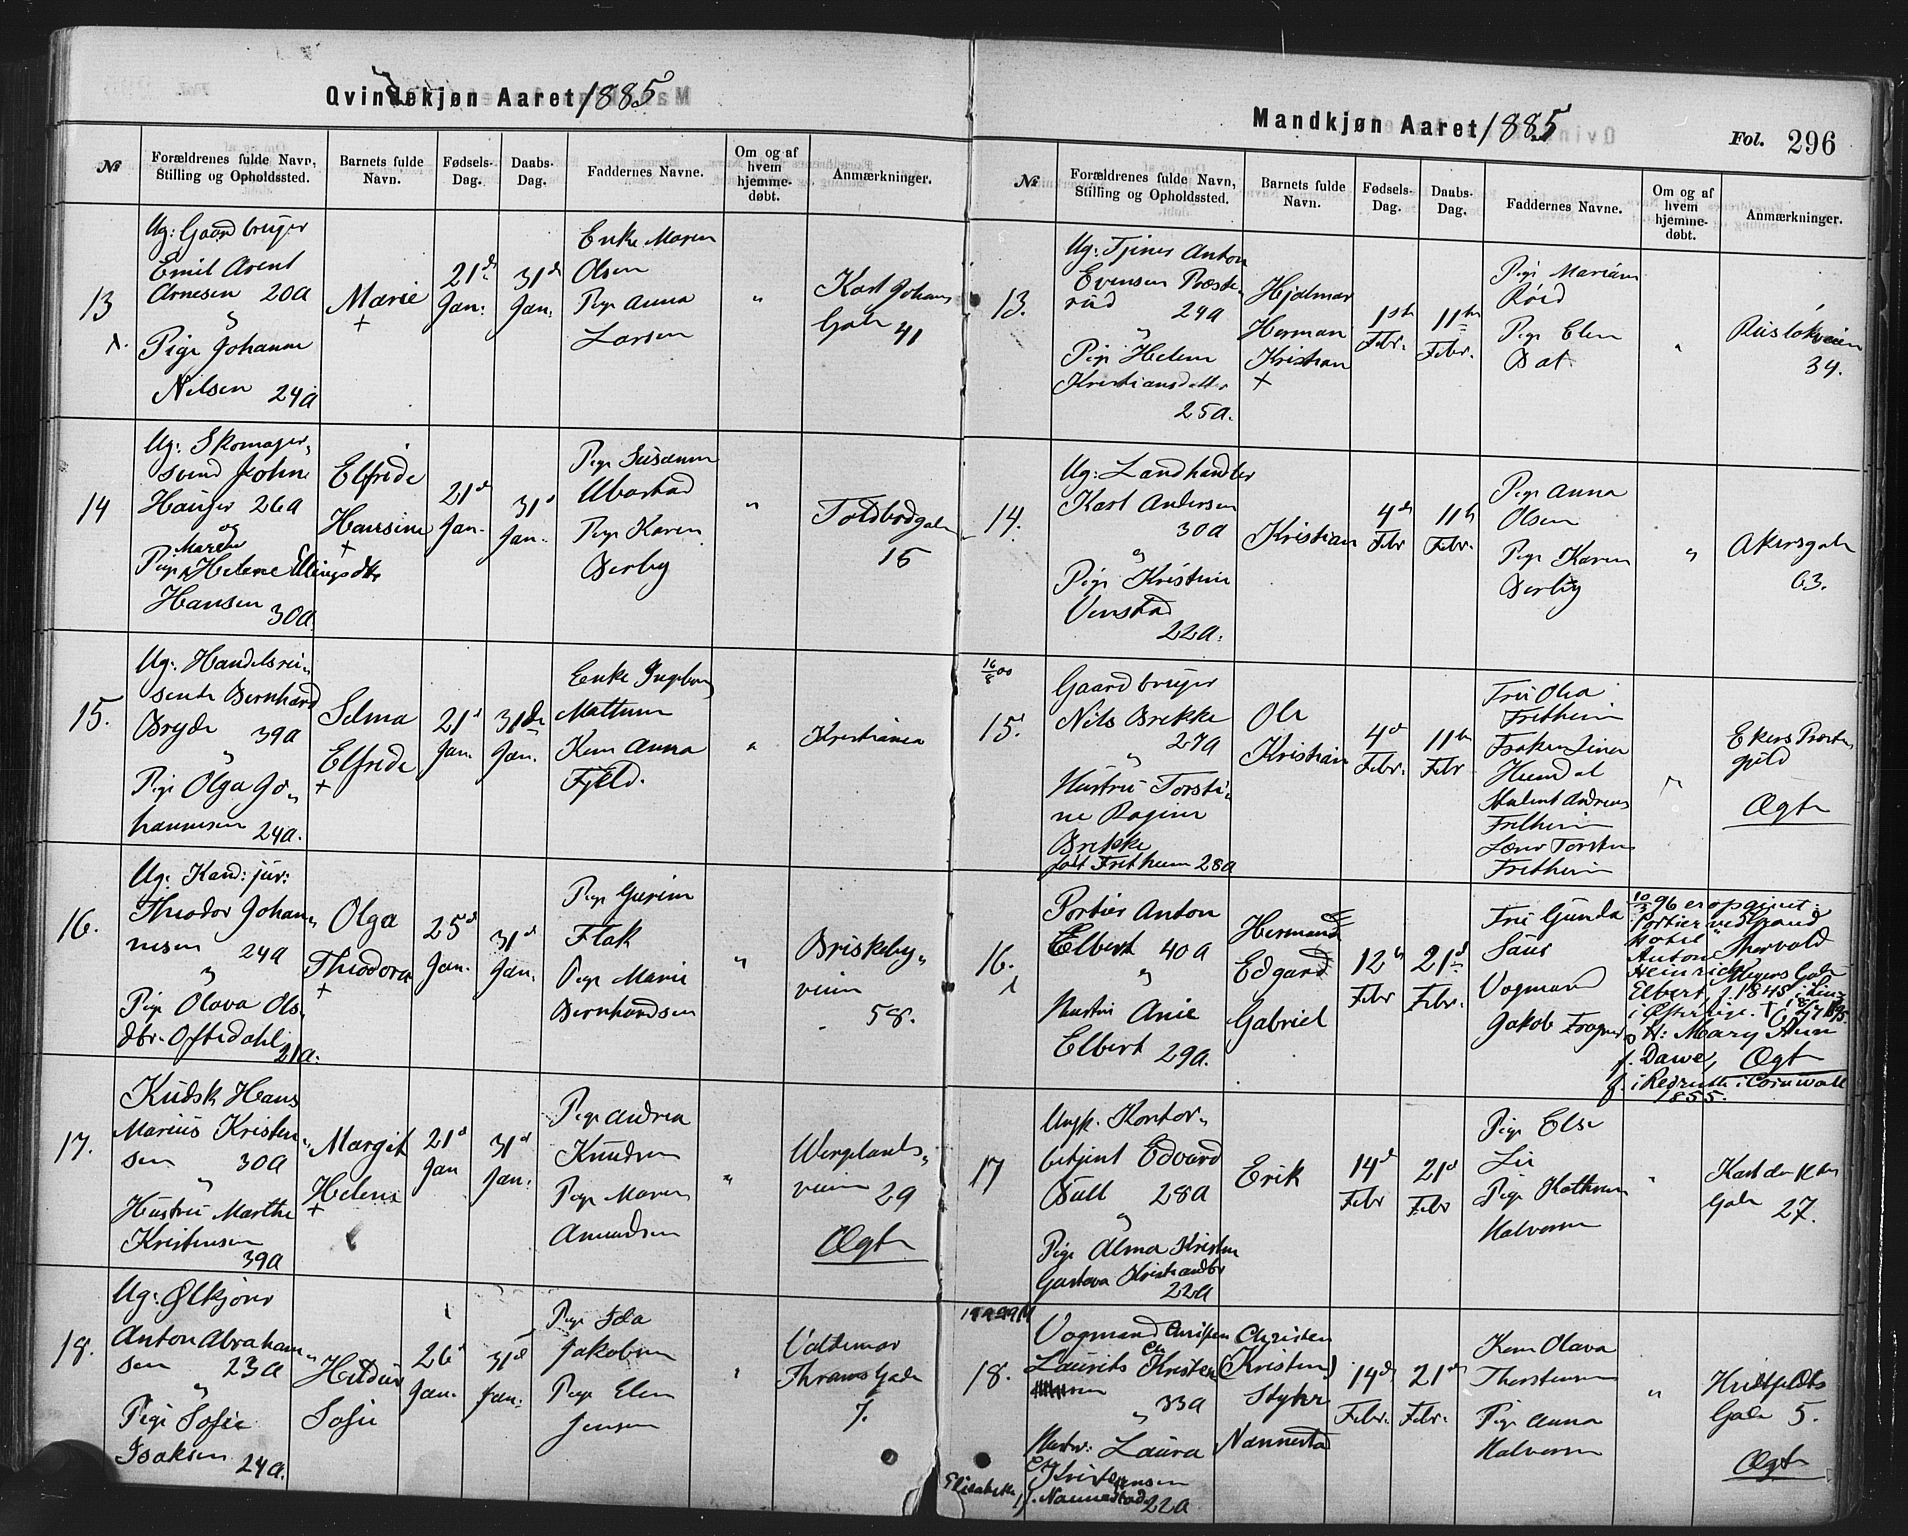 Qvindekjøn Aaret 1885
№
Forældrenes fulde Navn,
Stilling og Opholdssted.
Barnets fulde
Navn.
Fødsels-
Dag.
Daabs-
Dag.
Faddernes Navne.
Om og af
hvem
hjemme-
døbt.
Anmærkninger.
13
Ug: Gaardbruger
Emil Arent
Arnesen 20a
Pige Johanne
Nilsen 24a
Marie
21de
Jan:
31d
Jan:
Enke Maren
Olsen
Pige Anna
Larsen
"
Karl Johans
Gade 41
14
Ug: Skomager-
svend Johne
Hauger 26a
og
Marthe
Pige Helene Ellingsdtr
Hansen 30a.
Elfride
Hansine
21d
Jan.
31d
Jan.
Pige Susanne
Ubostad
Pige Karen
Berby
"
Toldbodgade
15
15.
Ug: Handelsrei-
sende Bernhard
Bryde 39a
"
Pige Olga Jo-
hannesen 24a.
Selma
Elfride
21d
Jan.
31de
Jan.
Enke Ingeborg
Mattum
Kone Anna
Fjeld.
"
Kristiania
16.
Ug: Kand: jur:
Theodor Johan-
nesen 24a
"
Pige Olava Ols-
dtr. Oftedahl
21a.
Olga
Theodora
25d
Jan.
31d
Jan.
Pige Gurine
Flak
Pige Marie
Bernhardsen
"
Briskeby-
veien
58.
17.
Kudsk Hans
Marius Kristen-
sen 30a
"
Hustru Marthe
Kristensen
39a
Margit
Helene
21d
Jan
31d
Jan.
Pige Andrea
Knudsen
Pige Maren
Amundsen
"
Wergelands-
veien 29
Ægte
18.
Ug: Ølkjører
Anton Abraham-
sen 23a
"
Pige Sofie
Isaksen 24a.
Hildur
Sofie
26d
Jan.
31d
Jan.
Pige Ida
Jakobsen
Pige Elen
Jensen
"
Valdemar
Thranes Gade
7.
Mandkjøn Aaret 1885
Fol. 296
№
Forældrenes fulde Navn,
Stilling og Opholdssted.
Barnets fulde
Navn.
Fødsels-
Dag.
Daabs-
Dag.
Faddernes Navne.
Om og af
hvem
hjemme-
døbt.
Anmærkninger.
13.
Ug: Tjener Anton
Evensen Præste-
rud 29a
"
Pige Helene
Kristiansdatter
25a.
Hjalmar
Herman
Kristian
1ste
Febr.
11te
Febr.
Pige Mariane
Røed
Pige Elen
Bat
"
Ruseløkveien
34.
14.
Ug: Landhandler
Karl Andersen
30a
og
Pige Kristine
Venstad
22a.
Kristian
4de
Febr
11te
Febr.
Pige Anna
Olsen
Pige Karen
Berby
"
Akersgade
63.
16/8 00
15.
Gaardbruger
Nils Brekke
27a
"
Hustru Torsti-
ne Ragine
Brekke
født Fretheim 28a
Ole
Kristian
4d
Febr.
11te
Febr
Fru Olea
Fretheim
Frøken Line
Hundal
Student Andreas
Fretheim
Lærer Torsten
Fretheim
"
Ekers Præste-
gjeld
Ægte
16.
Portier Anton
Elbert 40a
"
Hustru Anie
Elbert 29a.
Hermand
Edgard
Gabriel
12te
Febr
21d
Febr.
Fru Gunda
Saur
Vogmand
Jakob Frogner
10/3 96 er opgivet:
Portier ved Grand
Hotel Thorvald
Anton
Heinrich Meyers Gade
Elbert f. 1845 i Linz
i Østerrige.
o H: Mary Ann
f. Dawe, Ægte
f. i Redruth i Cornwall
1855.
17
Ungk. Kontor-
betjent Edvard
Bull 28a
"
Pige Alma Kristine
Gustava Kristiansdtr
22a
Erik
14d
Febr
21d
Febr
Pige Else
Lie
Pige Kathrine
Halvorsen
"
Karl den XII's
Gade
27.
18.
Vogmand Christen
Laurits Christen
33a
"
Hustru: Laura
Elisabeth Christensen
f. Nannestad 22a
Christen
(Kristen)
Styhr
Nannestad
14de
Febr.
21de
Febr.
Kone Olava
Thorstensen
Pige Anna
Halvorsen
"
Huitfeldts
Gade 5.
Ægte